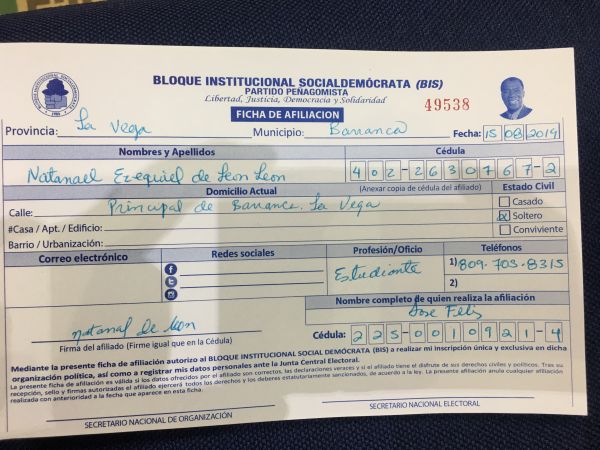 BLOQUE INSTITUCIONAL SOCIALDEMÓCRATA (BIS)
PARTIDO PEÑAGOMISTA
Libertad, Justicia, Democracia y Solidaridad
FICHA DE AFILIACION
49538
Provincia: La Vega Municipio: Barranca Fecha: 15/08/2019
Nombres y Apellidos Cédula
Natanael Ezequiel de Leon Leon 402-2630767-2
Domicilio Actual (Anexar copia de cédula del afiliado) Estado Civil
Calle: Principal de Barranca La Vega Casado
#Casa / Apt. / Edificio: Soltero
Barrio / Urbanización: Conviviente
Correo electrónico Redes sociales Profesión/Oficio Teléfonos
Estudiante 1) 809-705-8315
2)
Nombre completo de quien realiza la afiliación
Jose Felis
natanal de leon
Firma del afiliado (Firme igual que en la Cédula) Cédula: 225-0010921-4
Mediante la presente ficha de afiliación autorizo al BLOQUE INSTITUCIONAL SOCIAL DEMÓCRATA (BIS) a realizar mi inscripción única y exclusiva en dicha
organización política, así como a registrar mis datos personales ante la Junta Central Electoral.
La presente ficha de afiliación es válida si los datos ofrecidos por el afiliado son correctos, las declaraciones veraces y si el afiliado tiene el disfrute de sus derechos civiles y políticos. Tras su
recepción, sello y firmas autorizadas el afiliado ejercerá todos los derechos y los deberes estatutariamente sancionados, de acuerdo a la ley. La presente afiliación anula cualquier afiliación
realizada con anterioridad a la fecha que aparece en esta ficha.
SECRETARIO NACIONAL DE ORGANIZACIÓN SECRETARIO NACIONAL ELECTORAL